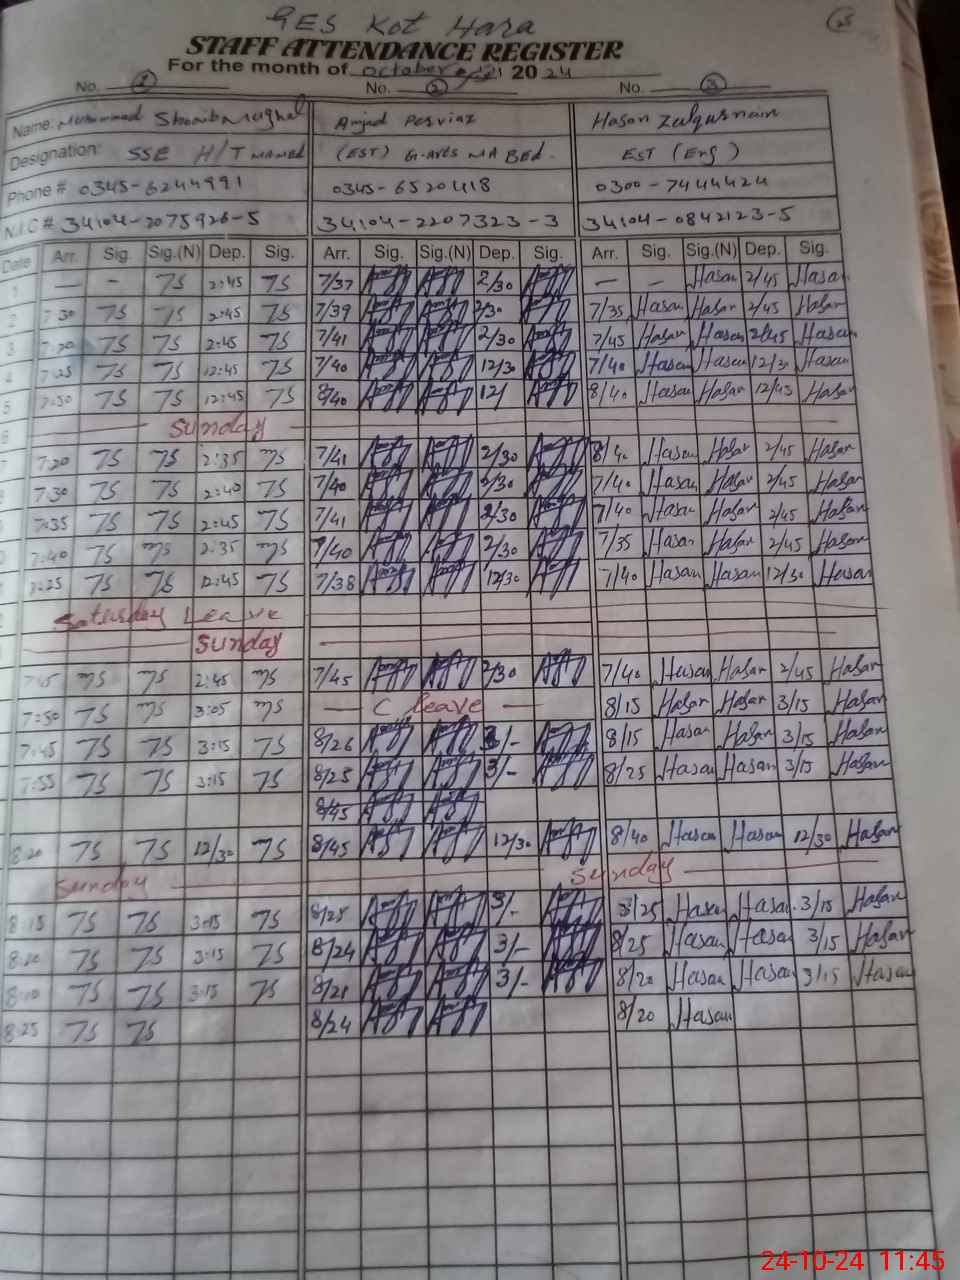 GES Kot Hara
STAFF ATTENDANCE REGISTER
For the month of october 2024
No. 1 No. 2 No. 3
Name: Muhammad Shoaib Mughal Amjad Perviaz Hasan Zulqurnain
Designation: SSE H/T MA MEd (EST) G.Arts MA BEd. EST (Eng)
Phone # 0345-6244991 0345-6520418 0300-7444424
N.I.C # 34104-2075926-5 34104-2207323-3 34104-0842123-5
Date Arr. Sig. Sig.(N) Dep. Sig. Arr. Sig. Sig.(N) Dep. Sig. Arr. Sig. Sig.(N) Dep. Sig.
1 — - 7S 2:45 7S 7/37 2/30 — - Hasan 2/45 Hasan
2 7:30 7S 7S 2:45 7S 7/39 2/30 7/35 Hasan Hasan 2/45 Hasan
3 7:20 7S 7S 2:45 7S 7/41 2/30 7/45 Hasan Hasan 2/45 Hasan
4 7:25 7S 7S 12:45 7S 7/40 12/30 7/40 Hasan Hasan 12/30 Hasan
5 7:50 7S 7S 12:45 7S 8/40 12/ 8/40 Hasan Hasan 12/45 Hasan
6 Sunday
7:20 7S 7S 2:35 7S 7/41 2/30 8/40 Hasan Hasan 2/45 Hasan
7:30 7S 7S 2:40 7S 7/40 2/30 7/40 Hasan Hasan 2/45 Hasan
7:35 7S 7S 2:45 7S 7/41 2/30 7/40 Hasan Hasan 2/45 Hasan
7:40 7S 7S 2:35 7S 7/40 2/30 7/35 Hasan Hasan 2/45 Hasan
7:25 7S 7S 12:45 7S 7/38 12/30 7/40 Hasan Hasan 12/30 Hasan
Saturday Leave
Sunday
7:15 7S 7S 2:45 7S 7/45 2/30 7/40 Hasan Hasan 2/45 Hasan
7:50 7S 7S 3:05 7S — C leave — 8/15 Hasan Hasan 3/15 Hasan
7:45 7S 7S 3:15 7S 8/26 3/- 8/15 Hasan Hasan 3/15 Hasan
7:55 7S 7S 3:15 7S 8/25 3/- 8/25 Hasan Hasan 3/15 Hasan
8/45
8:20 7S 7S 12/30 7S 8/45 12/30 8/40 Hasan Hasan 12/30 Hasan
Sunday Sunday
8:15 7S 7S 3:15 7S 8/25 3/- 8/25 Hasan Hasan 3/15 Hasan
8:20 7S 7S 3:15 7S 8/24 3/- 8/25 Hasan Hasan 3/15 Hasan
8:10 7S 7S 3:15 7S 8/21 3/- 8/20 Hasan Hasan 3/15 Hasan
8:25 7S 7S 8/24 8/20 Hasan
24-10-24 11:45